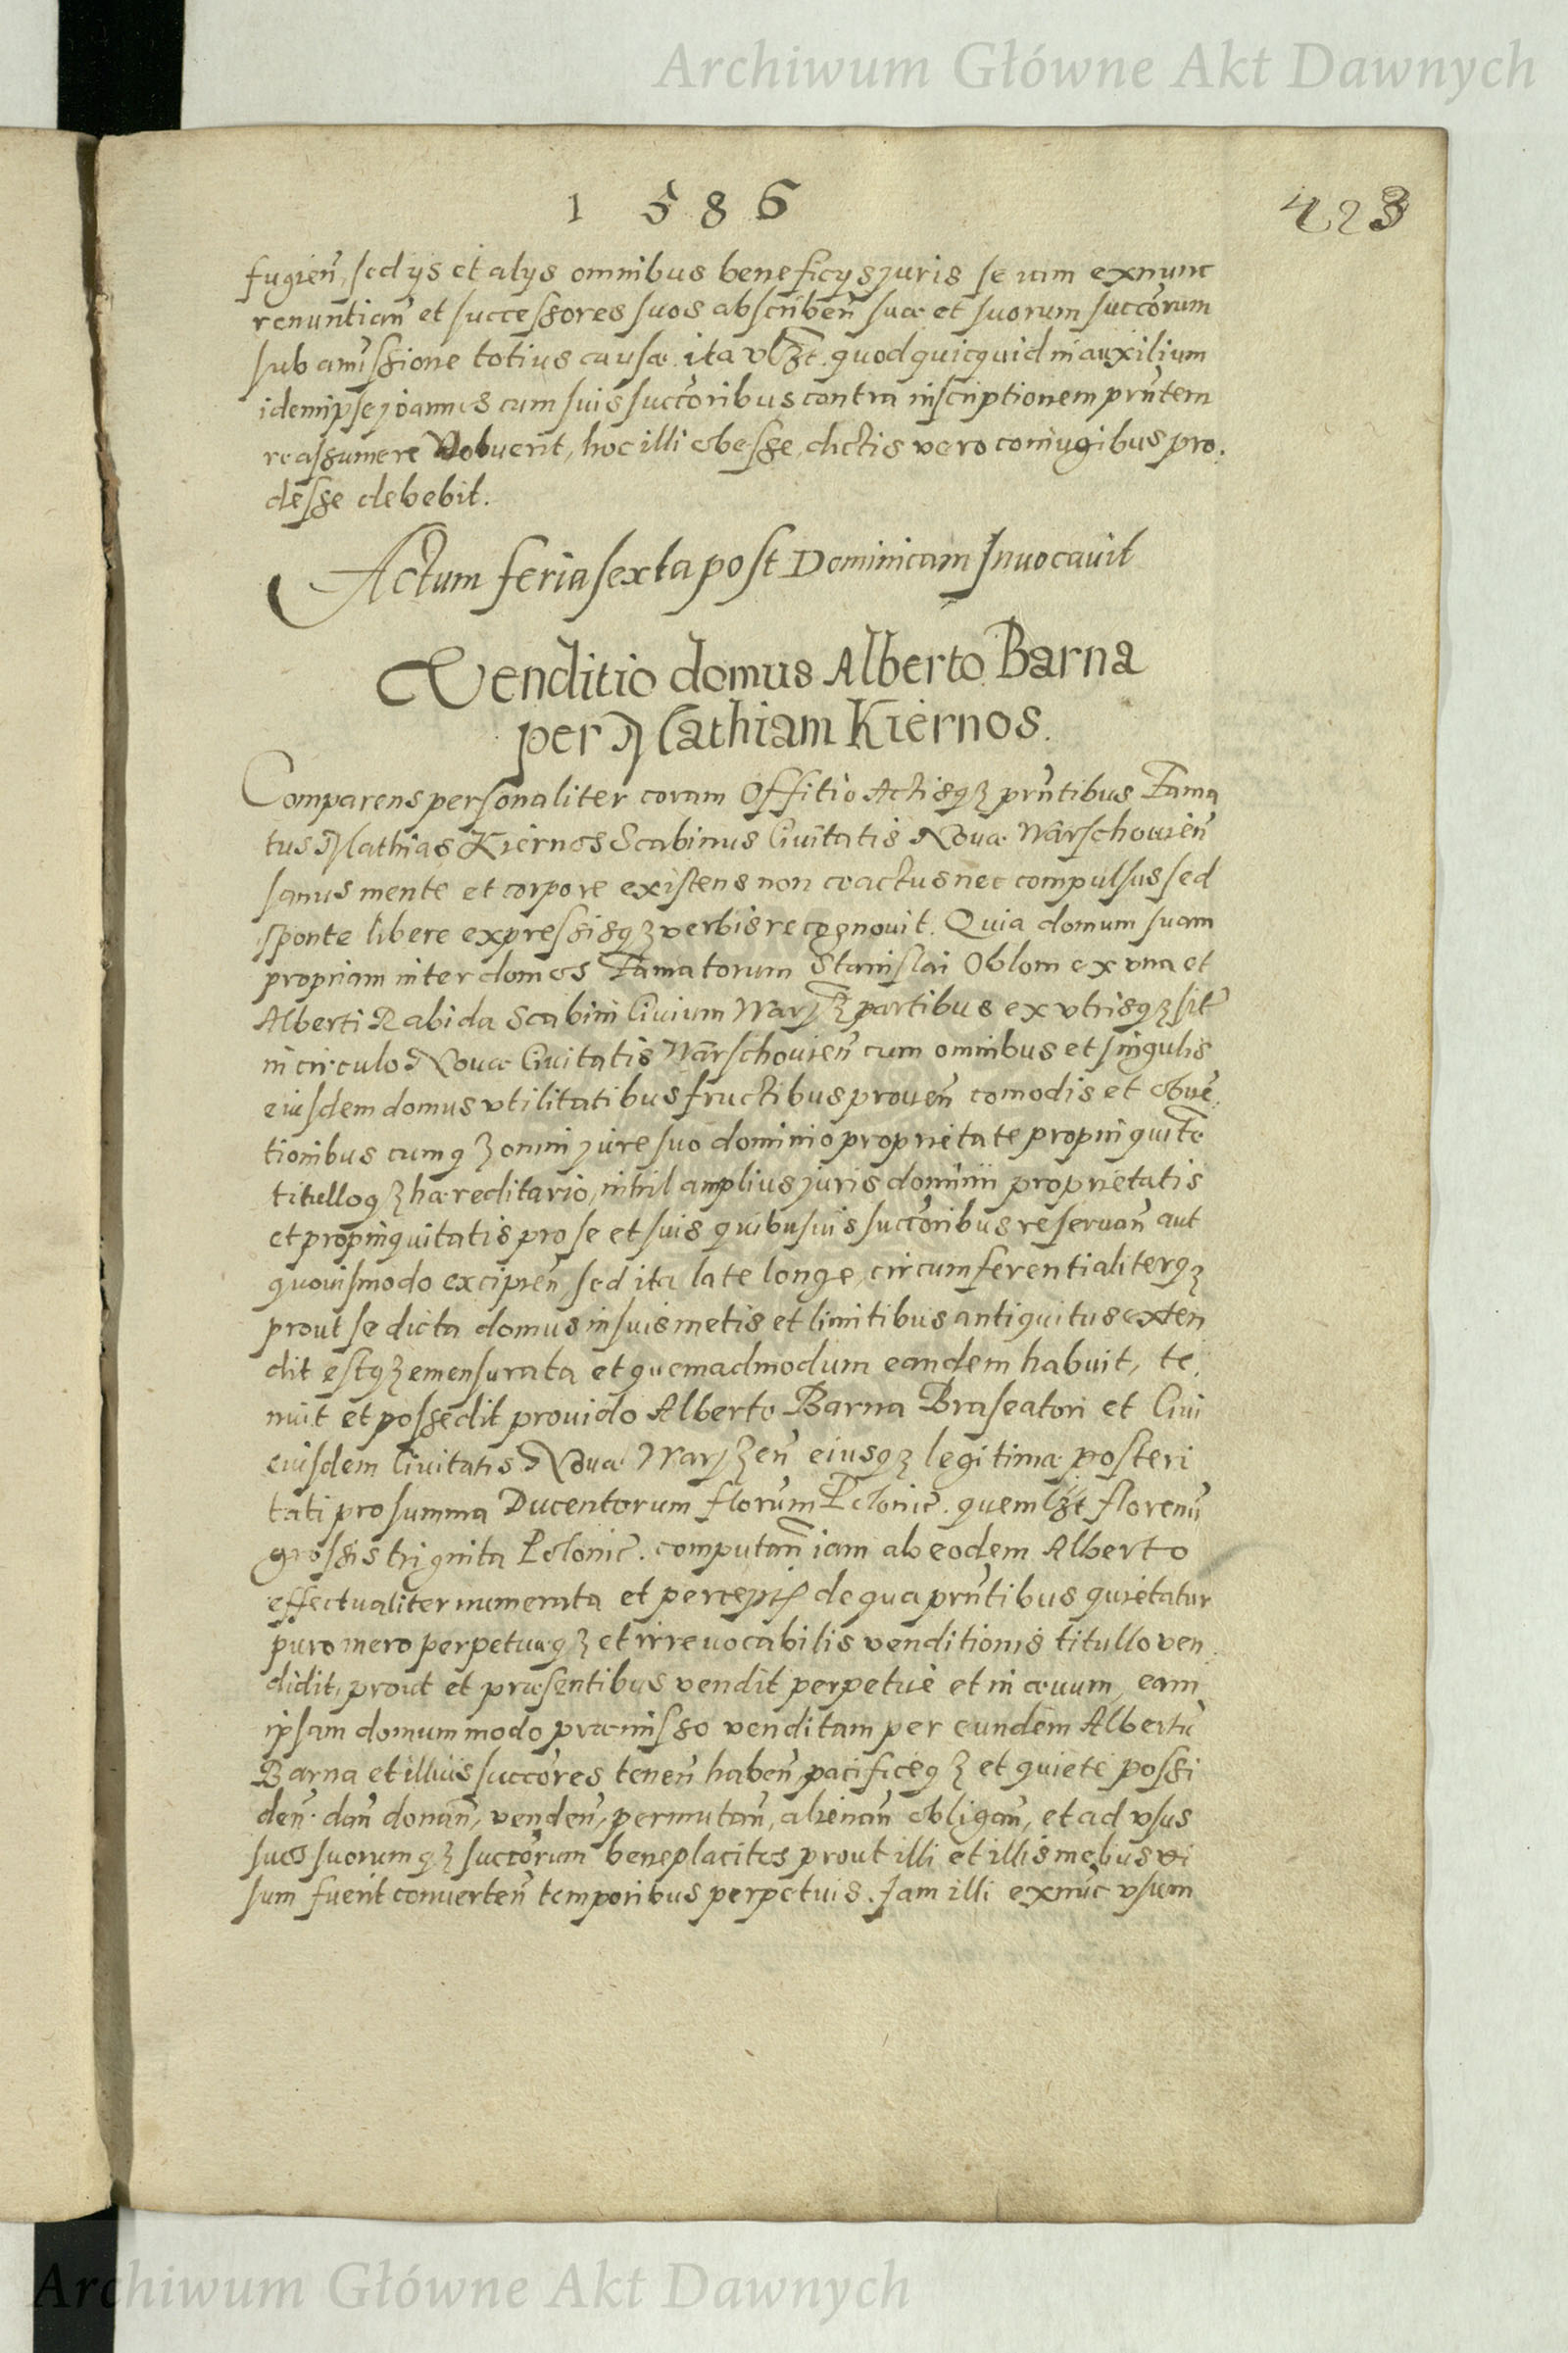 Archiwum Główne Akt Dawnych
1586
423
fugien, sed ijs et alijs omnibus beneficijs juris se iam exnunc
renuntian et successores suos abscriben suæ et suorum succorum
sub amissione totius causæ. ita vlzt. quod quicquid in auxilium
idem ipse joannes cum suis succoribus contra inscriptionem prntem
reassumere voluerit, hoc illi obesse, dictis vero coniugibus pro,
desse debebit.
Actum feria sexta post Dominicam Invocavit
Venditio domus Alberto Barna
per Mathiam Kiernos.
Comparens personaliter coram Offitio Actisq3 prntibus Fama
tus Mathias Kiernos Scabinus Civitatis Novæ Warschovien
sanus mente et corpore existens non coactus nec compulsus sed
sponte libere expressisq3 verbis recognouit. Quia domum suam
propriam inter domos Famatorum Stanislai Oblom ex vna et
Alberti Rabida Scabini Ciuium Warsz partibus ex vtrisq3 sit
in circulo Nouæ Ciuitatis Warschouien cum omnibus et singulis
eiusdem domus vtilitatibus fructibus prouen comodis et obue,
tionibus cumq3 omni jure suo dominio proprietate propinquite
titulloq3 hæreditario, nihil amplius juris dominii proprietatis
et propinquitatis pro se et suis quibusuis succoribus reseruan aut
quouismodo excipien, sed ita late longe, circumferentialiterq3
prout se dicta domus in suis metis et limitibus antiquitus exten
dit estq3 emensurata et quemadmodum eandem habuit, te,
nuit et possedit prouido Alberto Barna Braseatori et Ciui
eiusdem Ciuitatis Nouæ Warszen eiusq3 legitimæ posteri
tati pro summa Ducentorum florum Polonic. quemlzt florenu
grossis trignita Polonic. computan iam ab eodem Alberto
effectualiter numerata et percepta de qua prntibus quietatur
puro mero perpetuæq3 et irreuocabilis venditionis titullo ven
didit, prout et præsentibus vendit perpetue et in æuum, eam
ipsam domum modo præmisso venditam per eundem Albertu
Barna et illius succores tenen haben pacificeq3 et quiete possi
den. dan donan, venden, permutan, alienan obligan, et ad vsus
suos suorumq3 succorum beneplacitos prout illi et illis melius vi
sum fuerit conuerten temporibus perpetuis. Iam illi exnuc vsum
Archiwum Główne Akt Dawnych